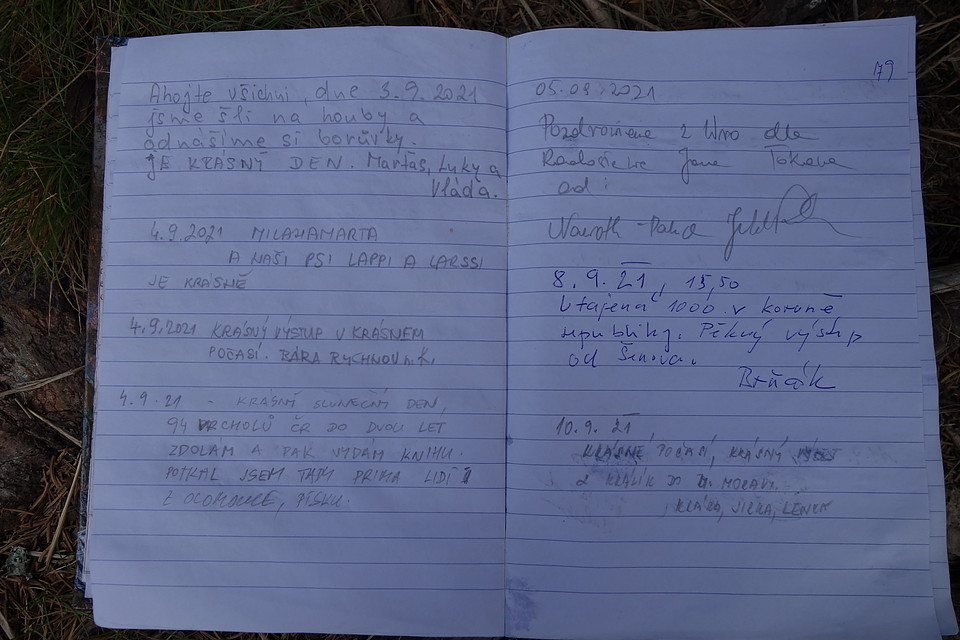 Ahojte všichni, dne 3.9.2021
jsme šli na houby a
odnášíme si borůvky.
JE KRASNÝ DEN. Martas, Luky a
Vláda.
4.9.2021 MILAHAMARTA
A NAŠI PSI LAPPI A LARSSI
JE KRÁSNĚ
4.9.2021 KRÁSNÝ VÝSTUP V KRÁSNEM
POČASÍ. BÁRA RYCHNOV n.K.
4.9.21 - KRÁSNÝ SLUNEČNÝ DEN,
94 VRCHOLŮ ČR DO DVOU LET
ZDOLÁM A PAK VYDÁM KNIHU.
POTKAL JSEM TADY PRIMA LIDI
Z OLOMOUCE, PÍSKU.
179
05.09.2021
Pozdrowienia z Wro dla
Jana
od:
8.9.21, 15,50
Utajená 1000 v koruně
republiky. Pěkný výstup
od Šenova.
Brňák
10.9.21
KRÁSNÉ POČASÍ, KRÁSNÝ
Z KRALIK DO MORAVY.
KLÁRA, JIRKA, LENKA